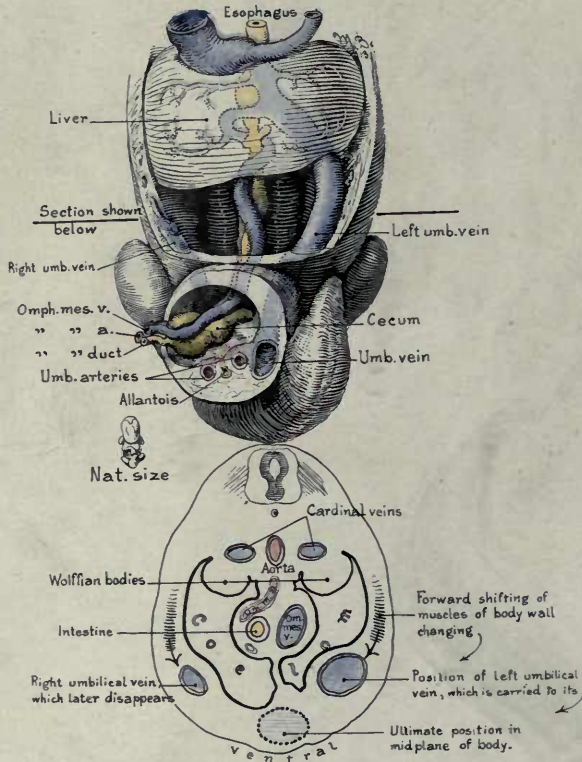 Esophagus
Liver
Section shown
below
Left umb.vein
Right umb.vein
Omph.mes. v.
„ „ a.
„ „ duct
Cecum
Umb.vein
Umb.arteries
Allantois
Nat. size
Cardinal veins
Aorta
Wolffian bodies
Intestine
Om.
mes.
v.
C o e l o m
Forward shifting of
muscles of body wall
changing
Right umbilical vein,
which later disappears
Position of left umbilical
vein, which is carried to its
Ultimate position in
midplane of body.
ventral